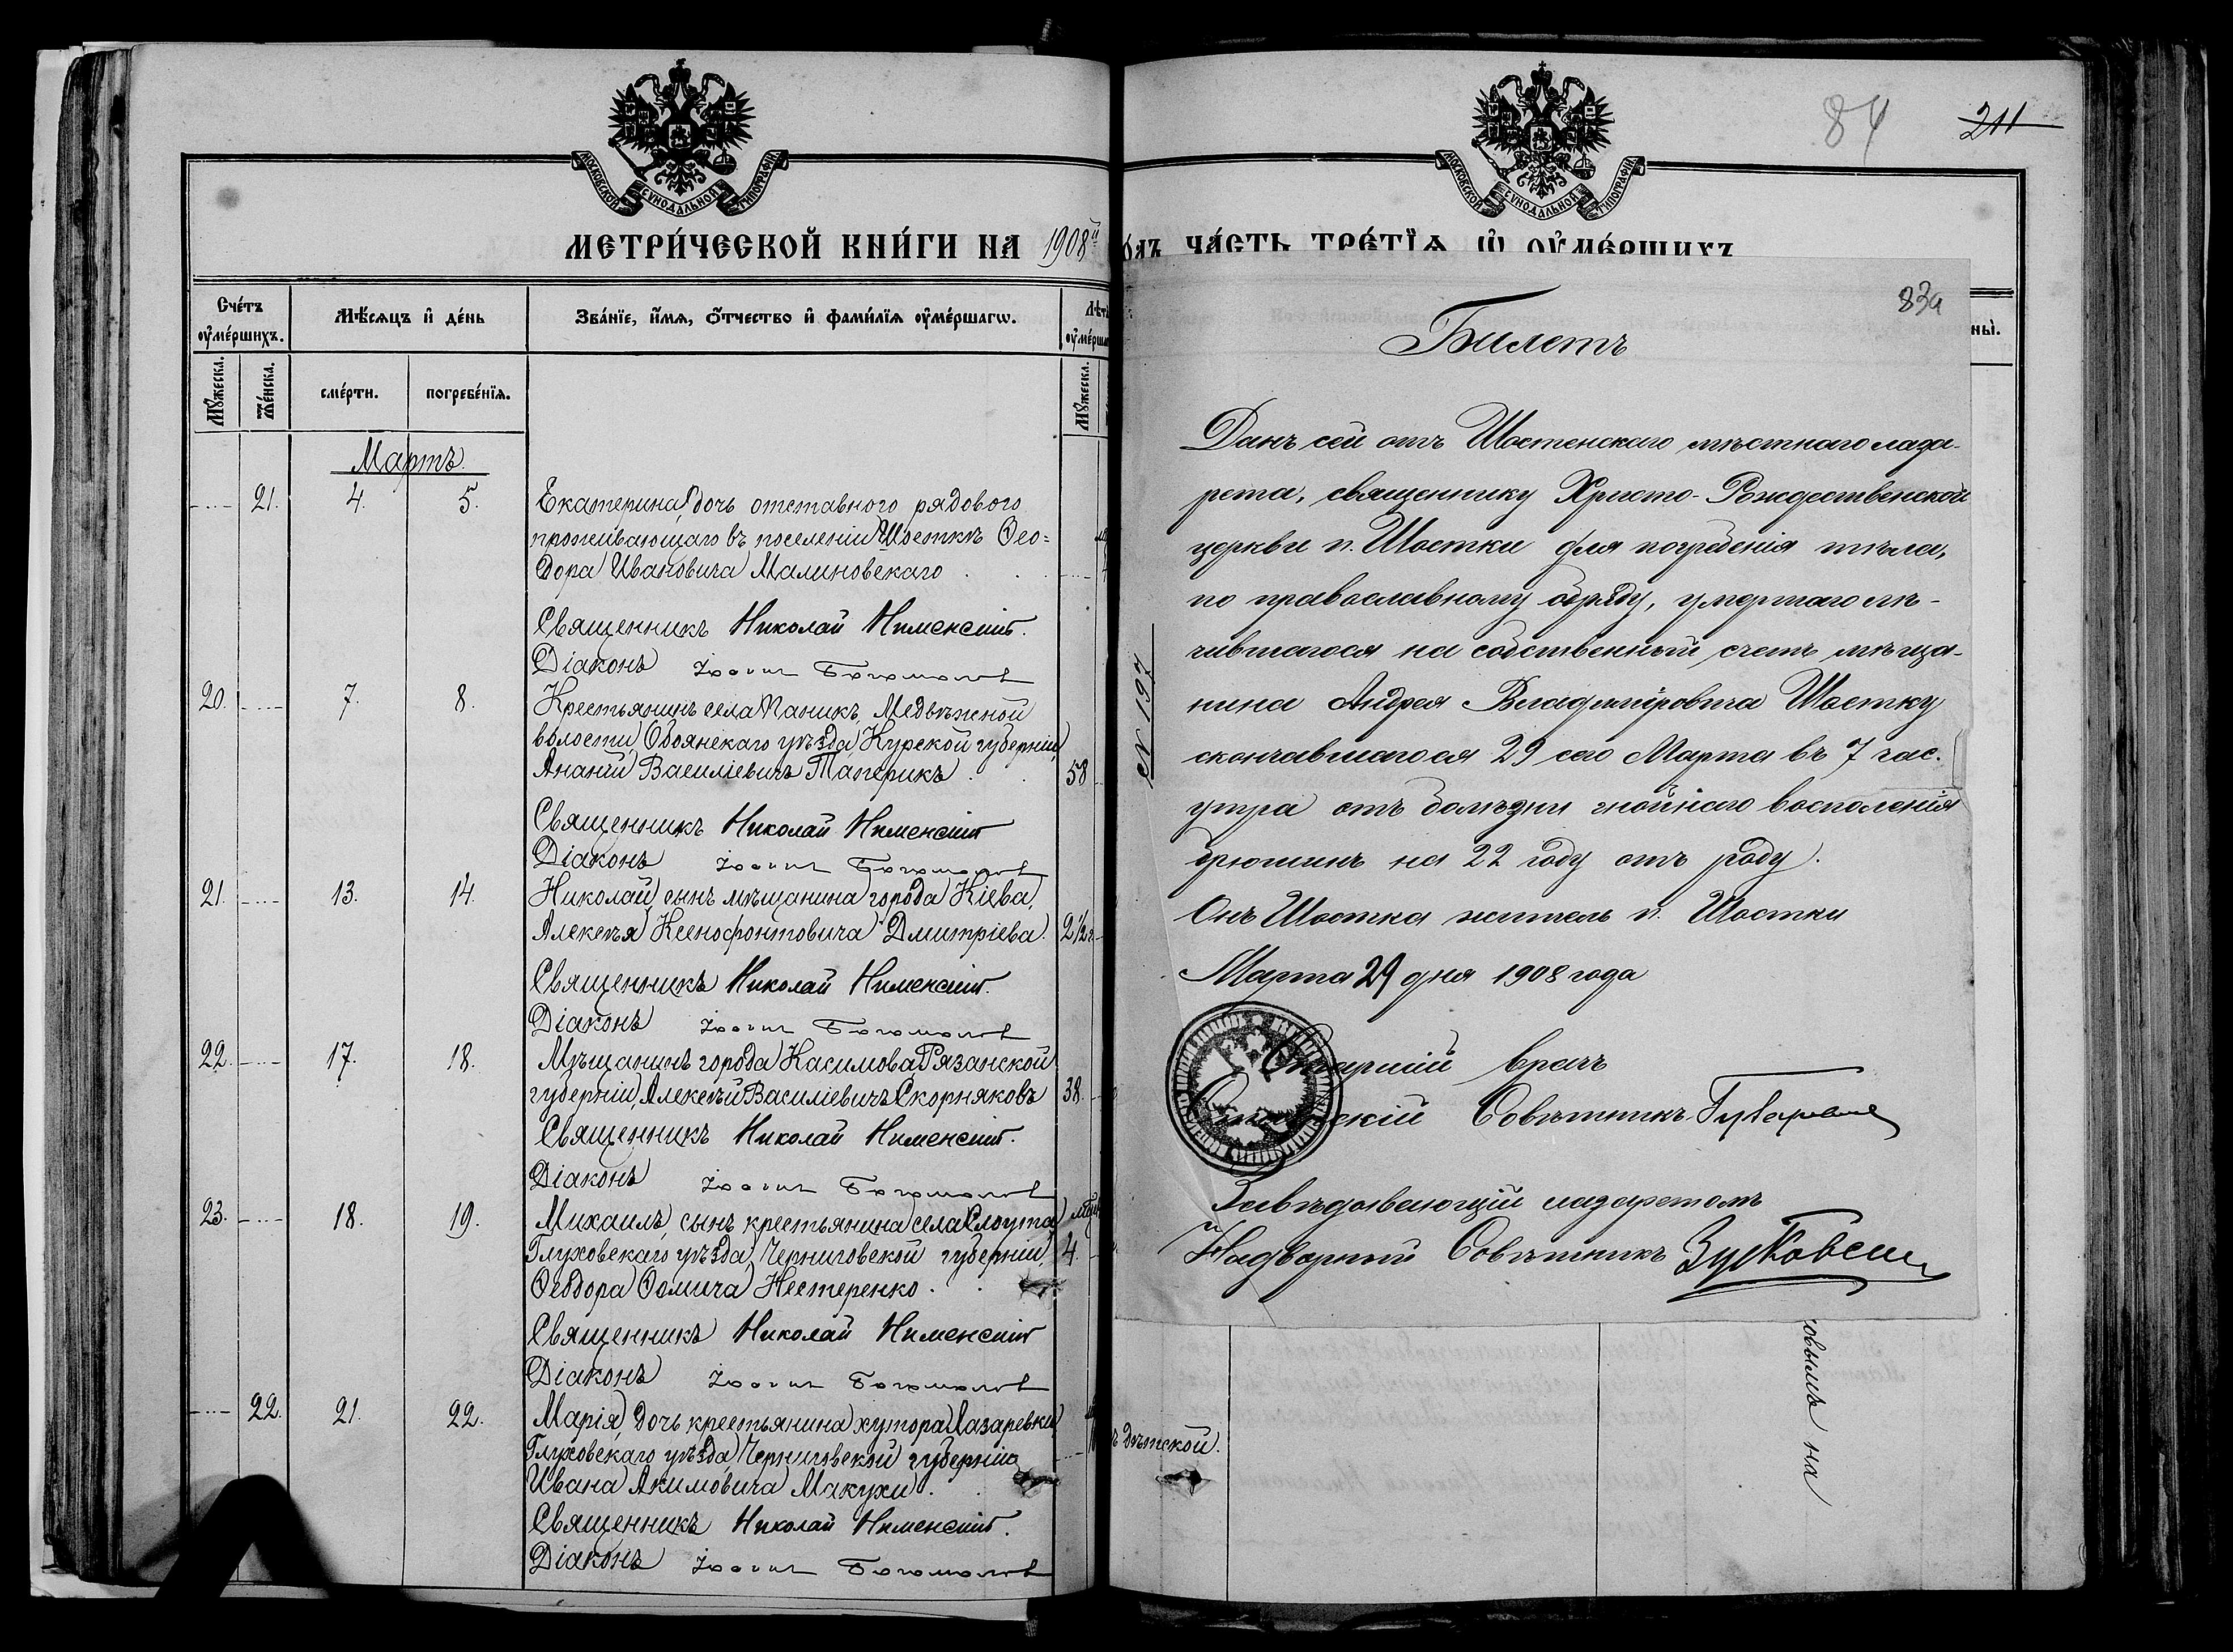 МОСКОВСКОЙ СѴНОДАЛЬНОЙ ТИПОГРАФІИ
МЕТРИ́ЧЕСКОЙ КНИ́ГИ НА 1908й
Сче́тъ оу҆ме́ршихъ.
Мꙋ́жеска.
Же́нска.
Мѣ́сяцъ и҆ де́нь
сме́рти.
погребе́нїѧ.
Зва́нїе, и҆́мѧ, ѻ҆́тчество и҆ фами́лїѧ оу҆ме́ршагѡ.
Лѣт
оу҆ме́рша
Мꙋ́жеска.
Мартъ.
21. 4. 5. Екатерина, дочь отставного рядового
проживающаго въ поселеніи Шосткѣ Ѳео=
дора Ивановича Малиновскаго
Священникъ Николай
Діаконъ Богомолов
20. 7. 8. Крестьянинъ села Паникъ, Медвѣженской
волости, Обоянскаго уѣзда Курской губерніи,
Ананій Василіевичъ 58
Священникъ Николай
Діаконъ Богомолов
21. 13. 14. Николай, сынъ мѣщанина города Кіева,
Алексѣя Ксенофонтовича Дмитріева. 2 1/2 г
Священникъ Николай
Діаконъ Богомолов
22. 17. 18. Мѣщанинъ города Касимова Рязанской
губерніи, Алексѣй Василіевичъ Скорняковъ 38.
Священникъ Николай
Діаконъ Богомолов
23. 18. 19. Михаилъ, сынъ крестьянина села Слоута,
Глуховскаго уѣзда, Черниговской губерніи, 4.
Ѳеодора Ѳомича Нестеренко.
Священникъ Николай
Діаконъ Богомолов
22. 21. 22. Марія, дочь крестьянина хутора Лазаревки
Глуховскаго уѣзда, Черниговской губерніи
Ивана Акимовича Макухи.
Священникъ Николай
Діаконъ Богомолов
84 211
МОСКОВСКОЙ СѴНОДАЛЬНОЙ ТИПОГРАФІИ
о́дъ ЧА́СТЬ ТРЕ́ТЇѦ Ѡ҆ ОУ҆МЕ́РШИХЪ
ны̀.
83а
Билетъ
№ 197
Данъ сей отъ Шостенскаго мѣстнаго лаза-
рета, священнику Христо-Рождественской
церкви п. Шостки для погребенія тѣла,
по православному обряду, умершаго лѣ-
чившагося на собственный счетъ мѣща-
нина Андрея Владиміровича Шостку
скончавшагося 29 сего Марта въ 7 час.
утра отъ болѣзни гнойнаго воспаленія
брюшинъ на 22 году отъ роду.
Онъ Шостка житель п. Шостки
Марта 29 дня 1908 года
Старшій врачъ
Статскій Совѣтникъ
Завѣдывающій лазаретомъ
Надворный Совѣтникъ
ъ дѣтской.
на